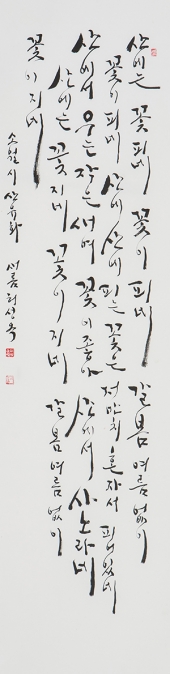 산에는 꽃 피네 꽃이 피네 갈 봄 여름 없이
꽃이 피네 산에 산에 피는 꽃은 저만치 혼자서 피어있네
산에서 우는 작은 새여 꽃이 좋아 산에서 사노라네
산에는 꽃 지네 꽃이 지네 갈 봄 여름 없이
꽃이 지네
소월 시 산유화